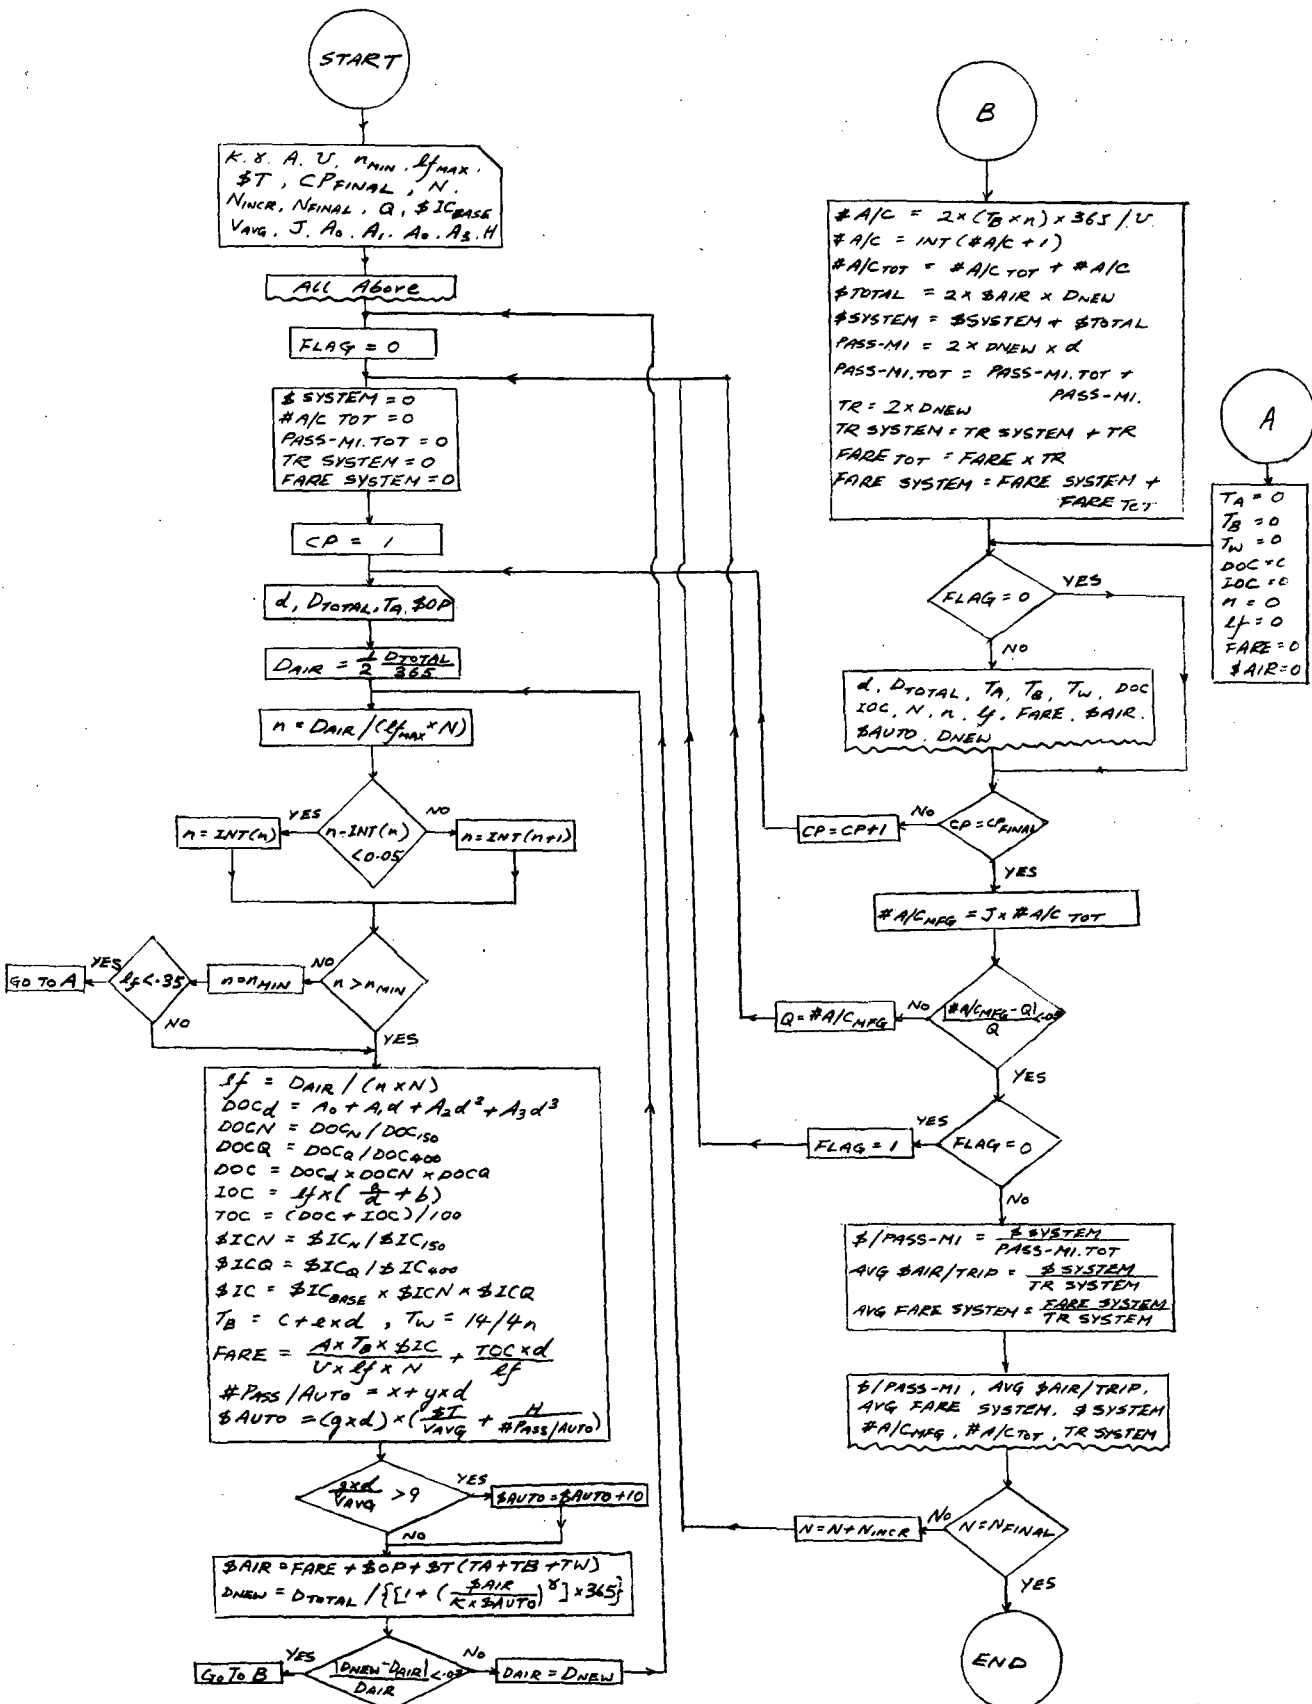 START
K. γ. A. U, nMIN, lfMAX.
$T, CPFINAL, N.
NINCR, NFINAL, Q, $ICBASE
VAVG, J. A0, A1. A0. A3. H
All Above
FLAG = 0
$ SYSTEM = 0
#A/C TOT = 0
PASS-MI. TOT = 0
TR SYSTEM = 0
FARE SYSTEM = 0
CP = 1
d, DTOTAL, TA, $OP
DAIR = 1/2 DTOTAL/365
n = DAIR/(lfMAX × N)
n-INT(n) <0.05
YES
NO
n = INT(n)
n = INT(n+1)
n > nMIN
NO
YES
n = nMIN
lf < .35
YES
NO
GO TO A
lf = DAIR/(n × N)
DOCd = A0 + A1d + A2d² + A3d³
DOCN = DOCN/DOC150
DOCQ = DOCQ/DOC400
DOC = DOCd × DOCN × DOCQ
IOC = lf × (a/d + b)
TOC = (DOC + IOC)/100
$ICN = $ICN/$IC150
$ICQ = $ICQ/$IC400
$IC = $ICBASE × $ICN × $ICQ
TB = C + e×d, TW = 14/4n
FARE = A × TB × $IC / U × lf × N + TOC × d / lf
#PASS/AUTO = x + y×d
$AUTO = (g×d) × ($T/VAVG + H/#PASS/AUTO)
g×d/VAVG > 9
YES
NO
$AUTO = $AUTO + 10
$AIR = FARE + $OP + $T(TA + TB + TW)
DNEW = DTOTAL/{[1 + ($AIR/K×$AUTO)^γ] × 365}
|DNEW - DAIR|/DAIR
YES
No
GO TO B
DAIR = DNEW
B
#A/C = 2 × (TB × n) × 365/U
#A/C = INT(#A/C + 1)
#A/CTOT = #A/CTOT + #A/C
$TOTAL = 2 × $AIR × DNEW
$SYSTEM = $SYSTEM + $TOTAL
PASS-MI = 2 × DNEW × d
PASS-MI.TOT = PASS-MI.TOT +
PASS-MI.
TR = 2 × DNEW
TR SYSTEM = TR SYSTEM + TR
FARE TOT = FARE × TR
FARE SYSTEM = FARE SYSTEM +
FARE TOT
A
TA = 0
TB = 0
TW = 0
DOC = 0
IOC = 0
n = 0
lf = 0
FARE = 0
$AIR = 0
FLAG = 0
YES
NO
d, DTOTAL, TA, TB, TW, DOC
IOC, N, n, lf, FARE, $AIR.
$AUTO. DNEW
CP = CPFINAL
NO
YES
CP = CP+1
#A/CMFG = J × #A/C TOT
|#A/CMFG - Q|/Q
NO
YES
Q = #A/CMFG
FLAG = 0
YES
No
FLAG = 1
$/PASS-MI = $ SYSTEM / PASS-MI.TOT
AVG $AIR/TRIP = $ SYSTEM / TR SYSTEM
AVG FARE SYSTEM = FARE SYSTEM / TR SYSTEM
$/PASS-MI, AVG $AIR/TRIP.
AVG FARE SYSTEM. $ SYSTEM
#A/CMFG, #A/CTOT, TR SYSTEM
N = NFINAL
No
YES
N = N + NINCR
END